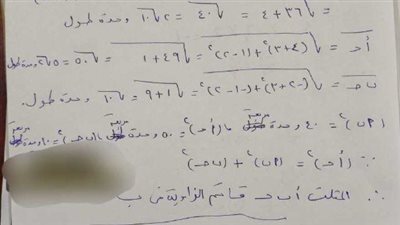 = √٣٦ + ٤ = √٤٠ = ٢√١٠ وحدة طول
أحـ = √(٤+٣)² + (١-٢)² = √٤٩ + ١ = √٥٠ = ٥√٢ وحدة طول
ب حـ = √(-٢+٣)² + (-١-٢)² = √١ + ٩ = √١٠ وحدة طول.
(أب)² = ٤٠ وحدة مربعة ، (أحـ)² = ٥٠ وحدة مربعة ، (ب حـ)² = ١٠ وحدة مربعة
∵ (أحـ)² = (أب)² + (ب حـ)²
∴ المثلث أ ب حـ قائم الزاوية في ب